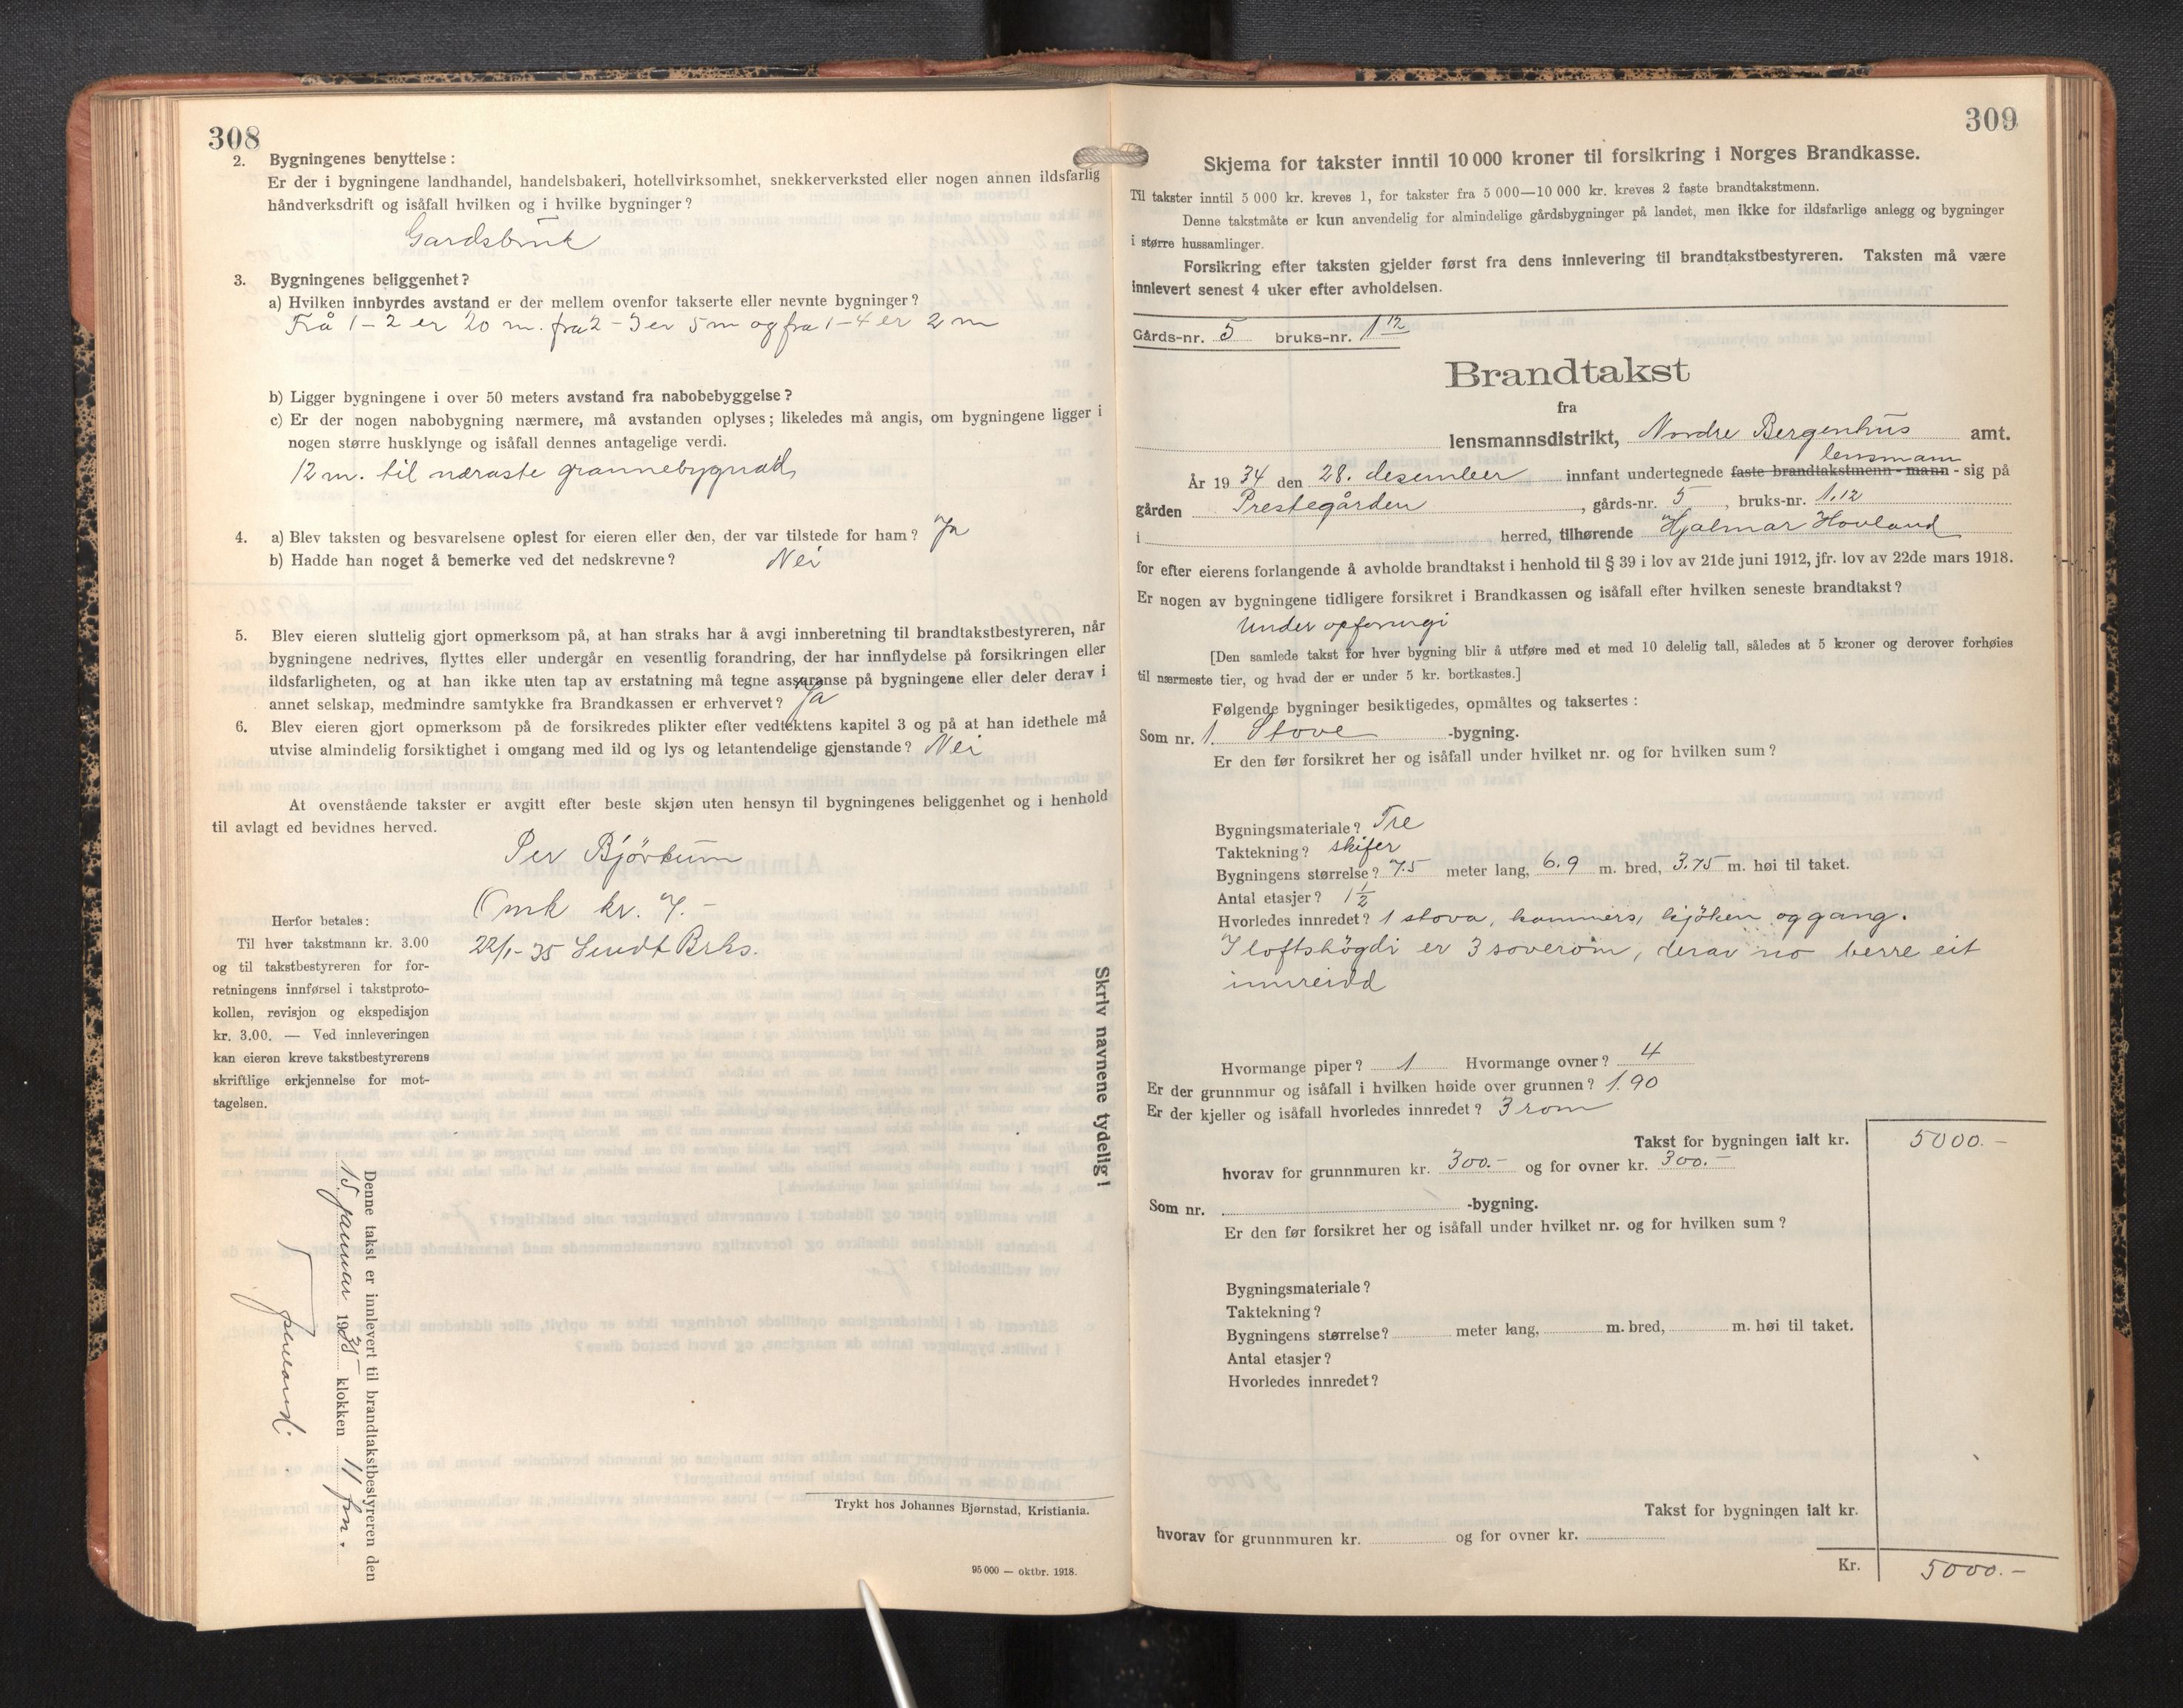 308
2. Bygningenes benyttelse:
Er der i bygningene landhandel, handelsbakeri, hotellvirksomhet, snekkerverksted eller nogen annen ildsfarlig
håndverksdrift og isåfall hvilken og i hvilke bygninger?
Gardsbruk
3. Bygningenes beliggenhet?
a) Hvilken innbyrdes avstand er der mellem ovenfor takserte eller nevnte bygninger?
Frå 1-2 er 20 m. fra 2-3 er 5 m og fra 1-4 er 2 m
b) Ligger bygningene i over 50 meters avstand fra nabobebyggelse?
c) Er der nogen nabobygning nærmere, må avstanden oplyses; likeledes må angis, om bygningene ligger i
nogen større husklynge og isåfall dennes antagelige verdi.
12 m. til næraste grannebygnad
4. a) Blev taksten og besvarelsene oplest for eieren eller den, der var tilstede for ham? Ja
b) Hadde han noget å bemerke ved det nedskrevne? Nei
5. Blev eieren sluttelig gjort opmerksom på, at han straks har å avgi innberetning til brandtakstbestyreren, når
bygningene nedrives, flyttes eller undergår en vesentlig forandring, der har innflydelse på forsikringen eller
ildsfarligheten, og at han ikke uten tap av erstatning må tegne assuranse på bygningene eller deler derav i
annet selskap, medmindre samtykke fra Brandkassen er erhvervet? Ja
6. Blev eieren gjort opmerksom på de forsikredes plikter efter vedtektens kapitel 3 og på at han idethele må
utvise almindelig forsiktighet i omgang med ild og lys og letantendelige gjenstande? Nei
At ovenstående takster er avgitt efter beste skjøn uten hensyn til bygningenes beliggenhet og i henhold
til avlagt ed bevidnes herved.
Per Bjørkum
Omk kr. 7.-
22/1-35 Sendt Brks.
Herfor betales:
Til hver takstmann kr. 3.00
og til takstbestyreren for for-
retningens innførsel i takstproto-
kollen, revisjon og ekspedisjon
kr. 3.00. — Ved innleveringen
kan eieren kreve takstbestyrerens
skriftlige erkjennelse for mot-
tagelsen.
Skriv navnene tydelig!
Denne takst er innlevert til brandtakstbestyreren den
15 januar 1935 klokken 11 fm.
Trykt hos Johannes Bjørnstad, Kristiania.
95 000 — oktbr. 1918.
309
Skjema for takster inntil 10 000 kroner til forsikring i Norges Brandkasse.
Til takster inntil 5 000 kr. kreves 1, for takster fra 5 000—10 000 kr. kreves 2 faste brandtakstmenn.
Denne takstmåte er kun anvendelig for almindelige gårdsbygninger på landet, men ikke for ildsfarlige anlegg og bygninger
i større hussamlinger.
Forsikring efter taksten gjelder først fra dens innlevering til brandtakstbestyreren. Taksten må være
innlevert senest 4 uker efter avholdelsen.
Gårds-nr. 5 bruks-nr. 1 12
Brandtakst
fra
lensmannsdistrikt, Nordre Bergenhus amt.
lensmann
År 1934 den 28. desember innfant undertegnede faste brandtakstmenn - mann - sig på
gården Prestegården, gårds-nr. 5, bruks-nr. 1.12
i herred, tilhørende Hjalmar Hovland
for efter eierens forlangende å avholde brandtakst i henhold til § 39 i lov av 21de juni 1912, jfr. lov av 22de mars 1918.
Er nogen av bygningene tidligere forsikret i Brandkassen og isåfall efter hvilken seneste brandtakst?
Under opføringi
[Den samlede takst for hver bygning blir å utføre med et med 10 delelig tall, således at 5 kroner og derover forhøies
til nærmeste tier, og hvad der er under 5 kr. bortkastes.]
Følgende bygninger besiktigedes, opmåltes og taksertes:
Som nr. 1. Stove -bygning.
Er den før forsikret her og isåfall under hvilket nr. og for hvilken sum?
Bygningsmateriale? Tre
Taktekning? skifer
Bygningens størrelse? 7.5 meter lang, 6.9 m. bred, 3.75 m. høi til taket.
Antal etasjer? 1 1/2
Hvorledes innredet? 1 stova, kammers, kjøken og gang.
I loftshøgdi er 3 soverom, derav no berre eit
innreidd
Hvormange piper? 1 Hvormange ovner? 4
Er der grunnmur og isåfall i hvilken høide over grunnen? 1.90
Er der kjeller og isåfall hvorledes innredet? 3 rom
Takst for bygningen ialt kr. 5000.-
hvorav for grunnmuren kr. 300.- og for ovner kr. 300.-
Som nr. -bygning.
Er den før forsikret her og isåfall under hvilket nr. og for hvilken sum?
Bygningsmateriale?
Taktekning?
Bygningens størrelse? meter lang, m. bred, m. høi til taket.
Antal etasjer?
Hvorledes innredet?
Takst for bygningen ialt kr.
hvorav for grunnmuren kr. og for ovner kr.
Kr. 5000.-